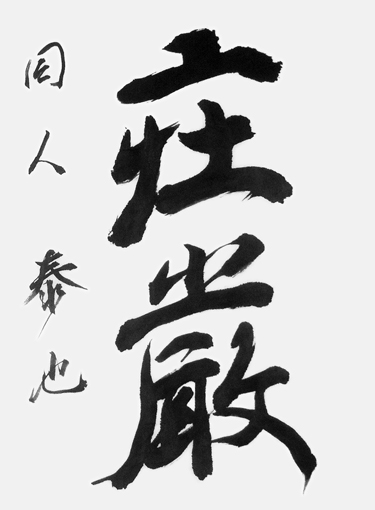 荘厳
同人 泰也